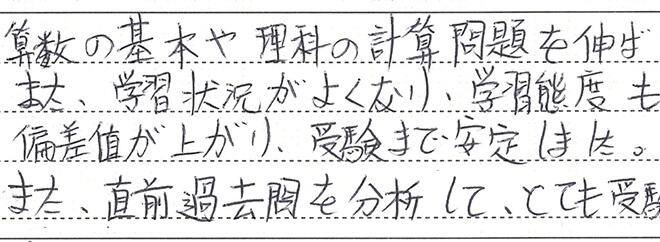 算数の基本や理科の計算問題を伸ば
また、学習状況がよくなり、学習態度も
偏差値が上がり、受験まで安定しました。
また、直前過去問を分析して、とても受験